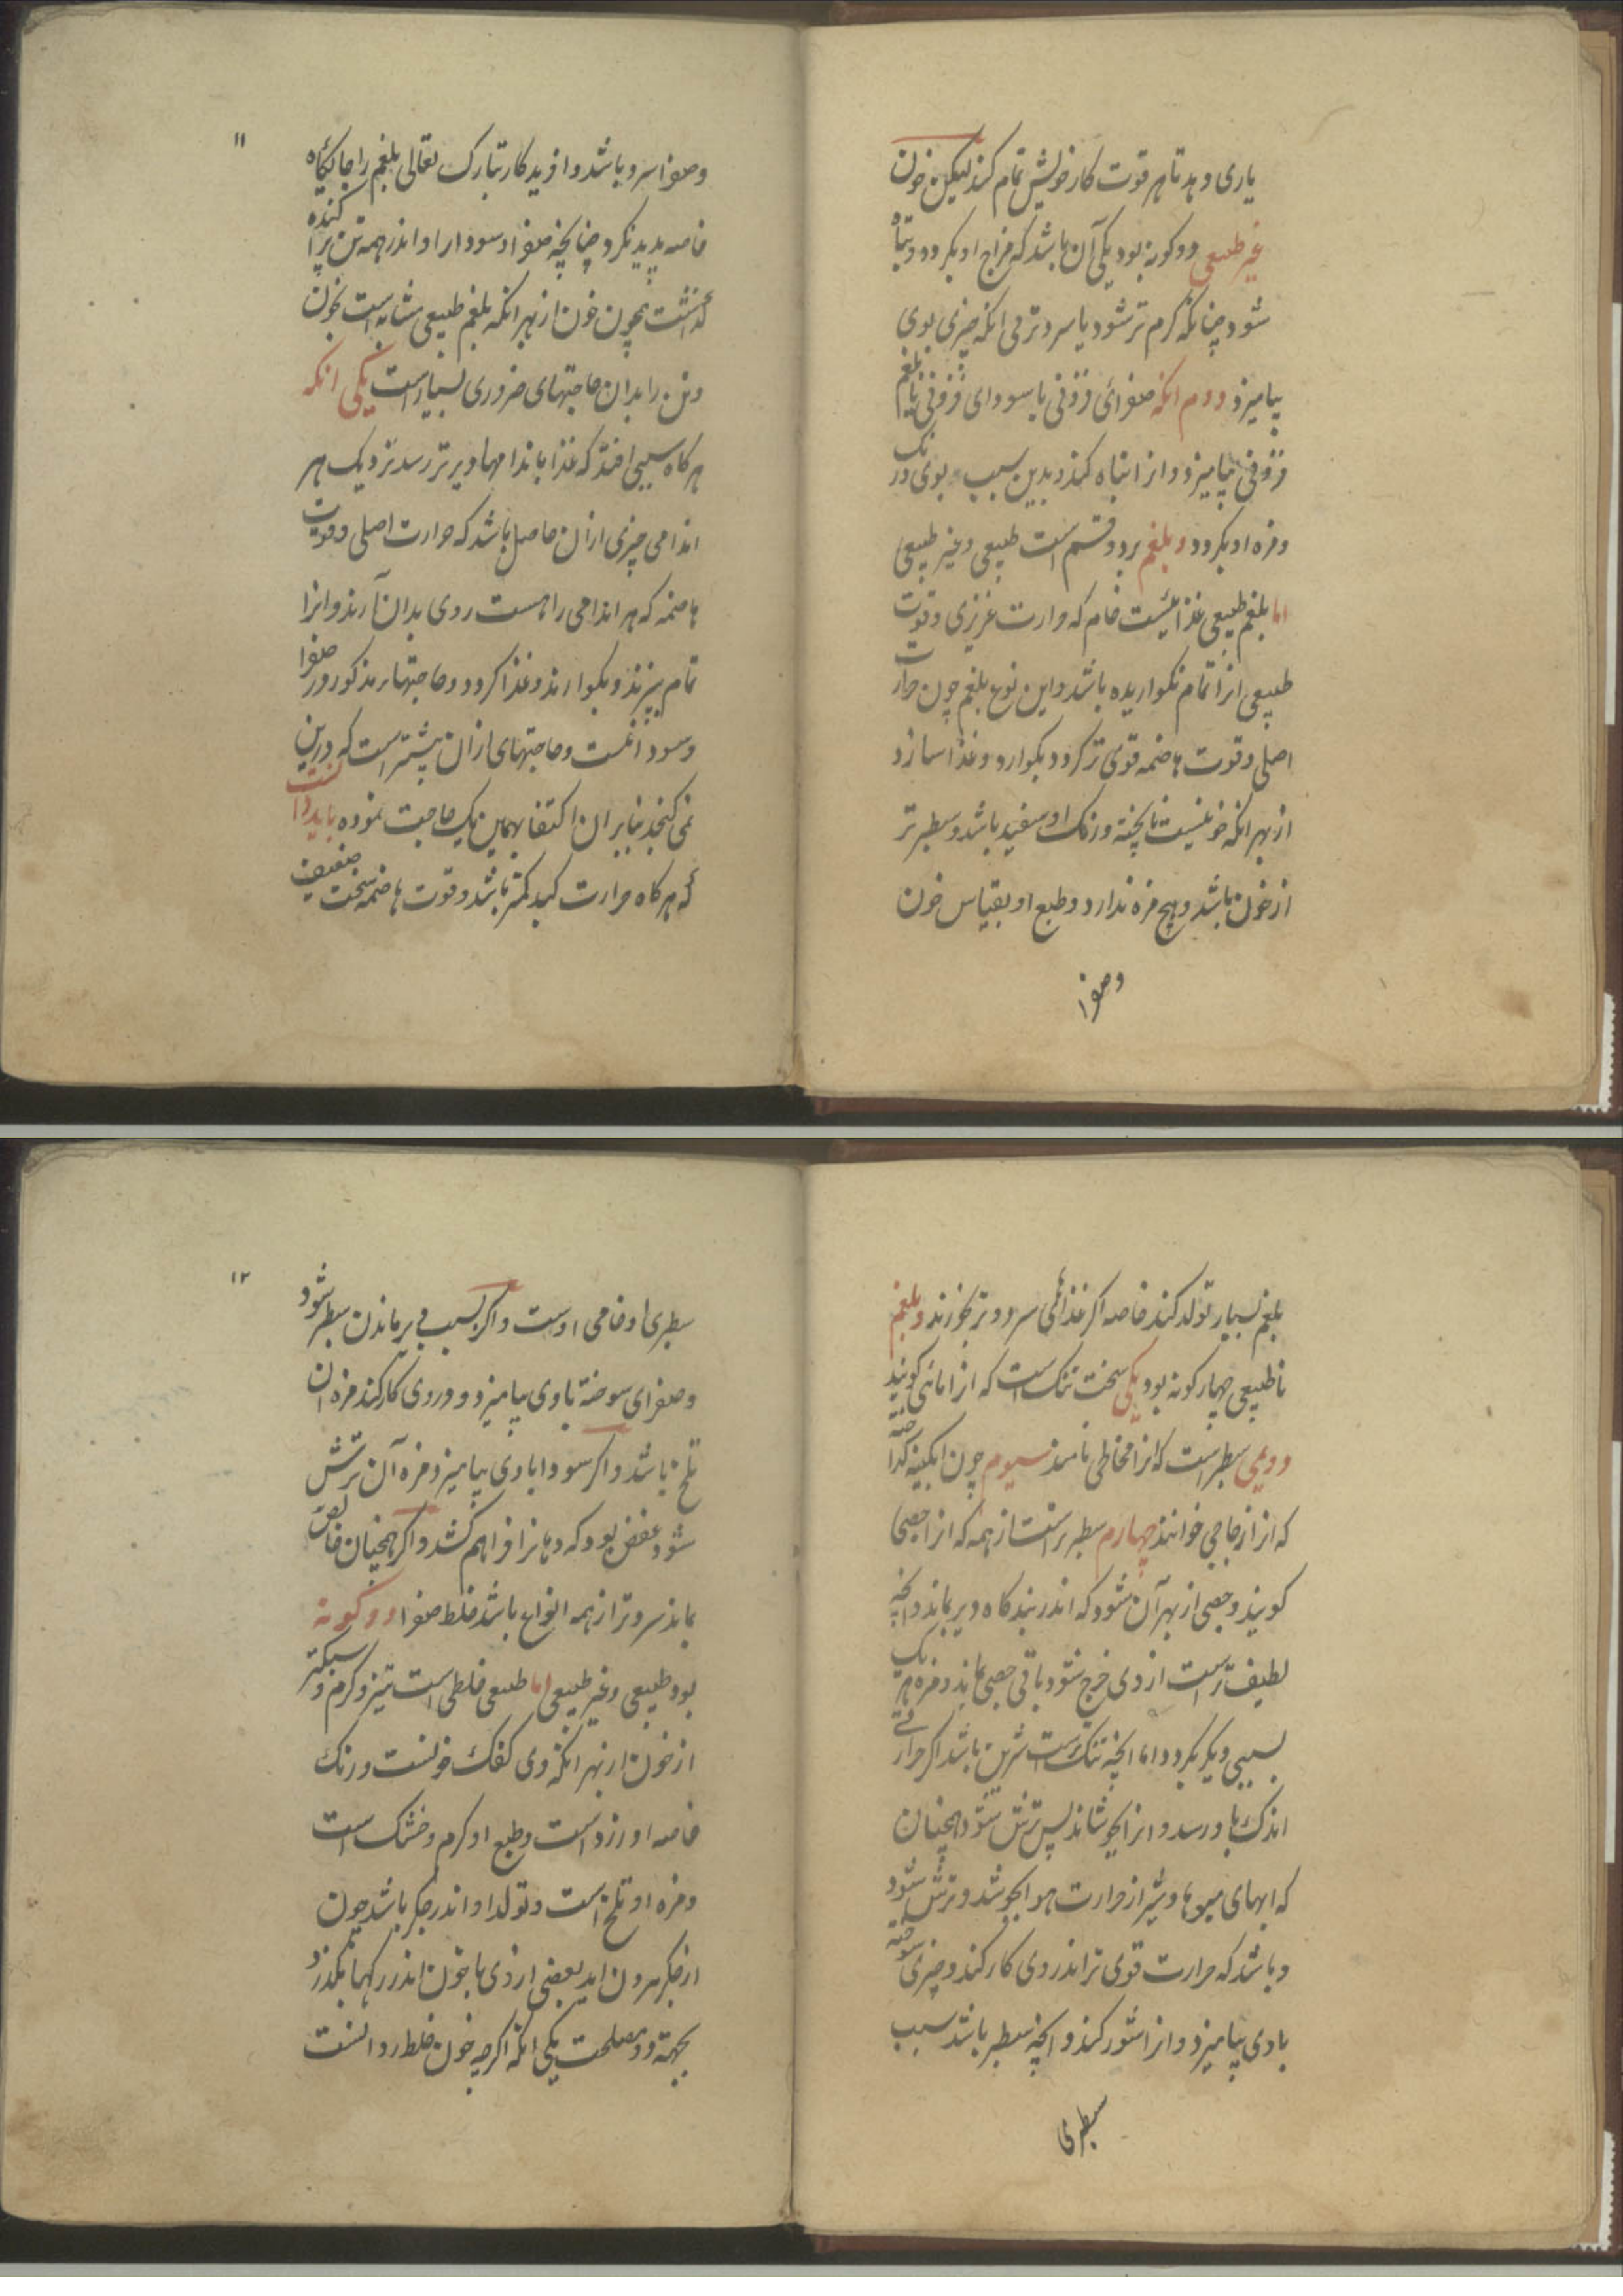 یاری دهد تا هر قوت کار خویش تمام کند لیکن خون
غیر طبیعی دو کونه بود یکی آن باشد که مزاج او بکردد و تباه
شود چنانکه کرم تر شود یا سردتر بی انکه چیزی بوی
بیامیزد دوم انکه صفرائی فزونی یا سودای فزونی یا بلغم
فزونی بیامیزد و انرا تباه کند و بدین سبب بوی و رنک
و مزه او بکردد و بلغم بر دو قسم است طبیعی و غیر طبیعی
اما بلغم طبیعی غذائیست خام که حرارت غریزی و قوت
طبیعی انرا تمام نکواریده باشد و این نوع بلغم چون حرارت
اصلی و قوت هاضمه قوی تر کردد بکوارد و غذا سازد
از بهر انکه خونیست ناپخته و رنک او سفید باشد و سطبرتر
از خون باشد و هیچ مزه ندارد و طبع او بقیاس خون
و صفرا
۱۱
و صفرا سرد باشد و افریدکار تبارک تعالی بلغم را جایکاه
خاصه پدید نکرد چنانچه صفرا و سودا را و اندر همه تن پراکنده
کذاشت همچون خون از بهر انکه بلغم طبیعی مشابه است بخون
و تن را بدان حاجتهای ضروری بسیار است یکی انکه
هر کاه سببی افتد که غذا باندامها دیرتر رسد نزدیک هر
اندامی چیزی ازان حاصل باشد که حرارت اصلی و قوت
هاضمه که هر اندامی را هست روی بدان آرند و انرا
تمام بپزند و بکوارند و غذا کردد و حاجتهاء مذکور در صفرا
و سودا نیست و حاجتهای ازان بیشتر است که درین
نمی کنجد بنابران اکتفا بهمین یک حاجت نموده باید دانست
که هر کاه حرارت کبد کمتر باشد و قوت هاضمه سخت ضعیف
بلغم بسیار تولد کند خاصه اکر غذاهای سرد و تر بخورند و بلغم
ناطبیعی چهار کونه بود یکی سخت تنک است که انرا مائی کویند
دویمی سطبر است که انرا مخاطی نامند سیوم چون ابکینه کداخته
که انرا زجاجی خوانند چهارم سطبر تر است از همه که انرا جصی
کویند و جصی از بهر آن شود که اندر بندکاه دیر بماند و انچه
لطیف تر است از وی خرج شود باقی جصی بماند و مزه هر یک
بسببی دیکر بکردد اما انچه تنک است شرین باشد اکر حرارتی
اندک باو رسد و انرا بجوشاند پس ترش شود همچنان
که ابهای میوها و شیر از حرارت هوا بجوشد و ترش شود
و باشد که حرارت قوی تر اندر وی کار کند و چیزی سوخته
با وی بیامیزد و انرا شور کند و انچه سطبر باشد سبب
سطبری
۱۲
سطبری او خامی اوست و اکر بسبب دیر ماندن سطبر شود
و صفرای سوخته با وی بیامیزد و در وی کار کند مزه ان
تلخ باشد و اکر سودا با وی بیامیزد مزه آن ترش
شود و عفص بود که دهانرا فراهم کشد و اکر همچنان خالص
بماند سردتر از همه انواع باشد خلط صفرا دو کونه
بود طبیعی و غیر طبیعی اما طبیعی خلطی است تیز و کرم و سبکتر
از خون از بهر انکه وی کفک خونست و رنک
خاصه او زرد است و طبع او کرم و خشک است
و مزه او تلخ است و تولد او اندر جکر باشد چون
از جکر بیرون اید بعضی از وی با خون اندر رکها بکذرد
بجهته دو مصلحت یکی انکه اکرچه خون خلط